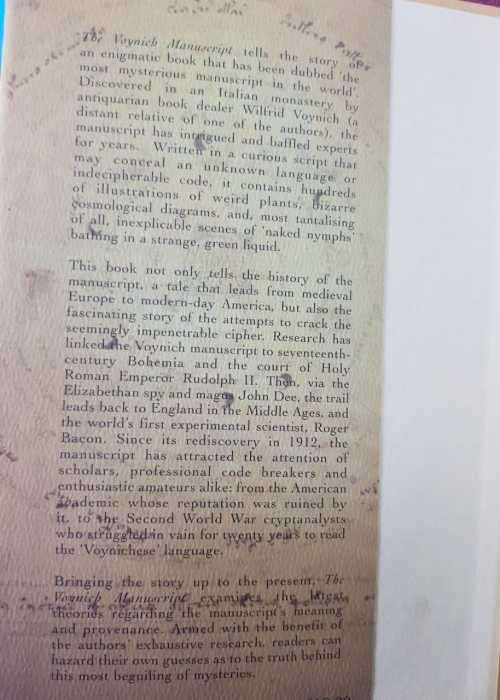 The Voynich Manuscript tells the story of
an enigmatic book that has been dubbed 'the
most mysterious manuscript in the world'.
Discovered in an Italian monastery by
antiquarian book dealer Wilfrid Voynich (a
distant relative of one of the authors), the
manuscript has intrigued and baffled experts
for years. Written in a curious script that
may conceal an unknown language or
indecipherable code, it contains hundreds
of illustrations of weird plants, bizarre
cosmological diagrams, and, most tantalising
of all, inexplicable scenes of 'naked nymphs'
bathing in a strange, green liquid.
This book not only tells the history of the
manuscript, a tale that leads from medieval
Europe to modern-day America, but also the
fascinating story of the attempts to crack the
seemingly impenetrable cipher. Research has
linked the Voynich manuscript to seventeenth-
century Bohemia and the court of Holy
Roman Emperor Rudolph II. Then, via the
Elizabethan spy and magus John Dee, the trail
leads back to England in the Middle Ages, and
the world's first experimental scientist, Roger
Bacon. Since its rediscovery in 1912, the
manuscript has attracted the attention of
scholars, professional code breakers and
enthusiastic amateurs alike: from the American
academic whose reputation was ruined by
it, to the Second World War cryptanalysts
who struggled in vain for twenty years to read
the 'Voynichese' language.
Bringing the story up to the present, The
Voynich Manuscript examines the latest
theories regarding the manuscript's meaning
and provenance. Armed with the benefit of
the authors' exhaustive research, readers can
hazard their own guesses as to the truth behind
this most beguiling of mysteries.